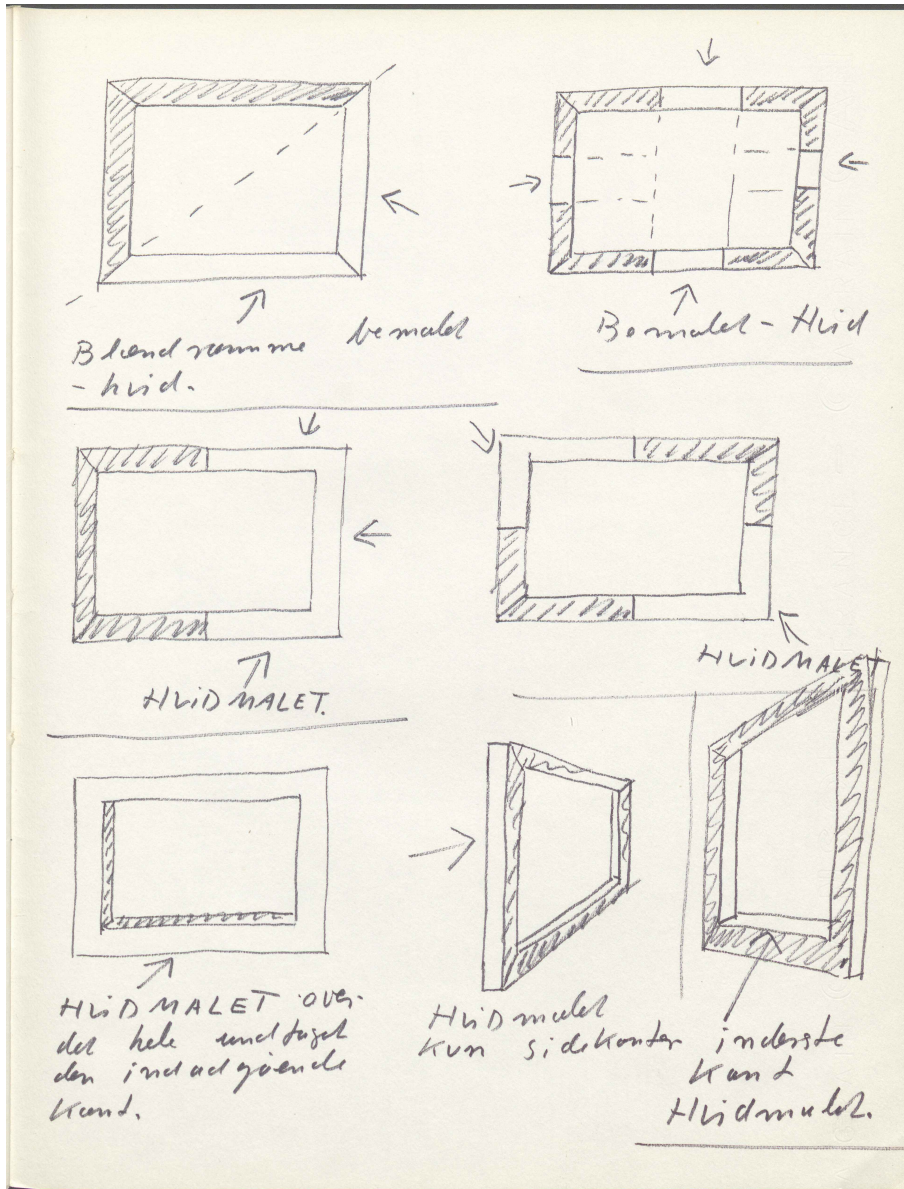 Blændramme bemalet
- hvid.
Bemalet - Hvid
HViDMALET.
HViDMALET
HViDMALET over
det hele undtaget
den indadgående
Kant.
Hvidmalet
Kun sidekanten
inderste
Kant
Hvidmalet.